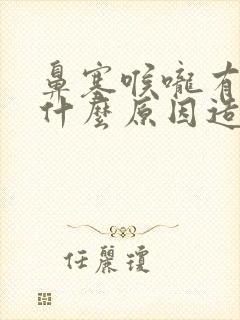 鼻塞喉嚨有
什麼原因造
任麗瓊